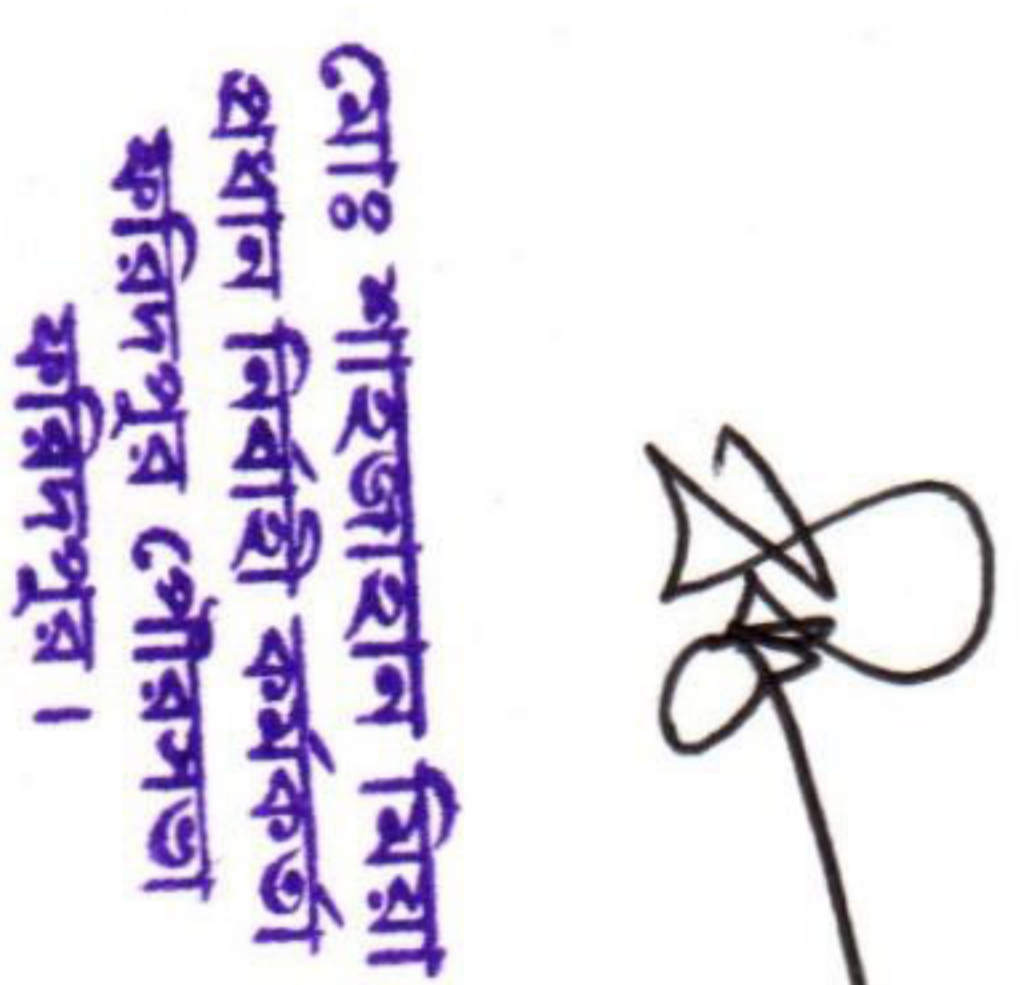 মোঃ শাহজাহান মিয়া
প্রধান নির্বাহী কর্মকর্তা
ফরিদপুর পৌরসভা
ফরিদপুর।